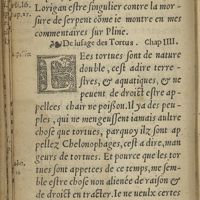 Lorigan estre singulier contre la mor-
sure de serpent cõme ie monstre en mes
commentaires sur Pline.
De lusage des Tortus. Chap IIII.
LEs tortues sont de nature
double, cest adire terre-
stres, & aquatiques, & ne
peuent de droict estre ap-
pellees chair ne poisõn. Il ya des peu-
ples, qui ne mengeussent iamais aultre
chose que tortues, parquoy ilz sont ap
pellez Chelonophages, cest a dire, man
geurs de tortues. Et pource que les tor
tues sont appetees de ce temps, me sem-
ble estre chose non alienée de raison &
de droict en tracter. Ie ne veulx certes